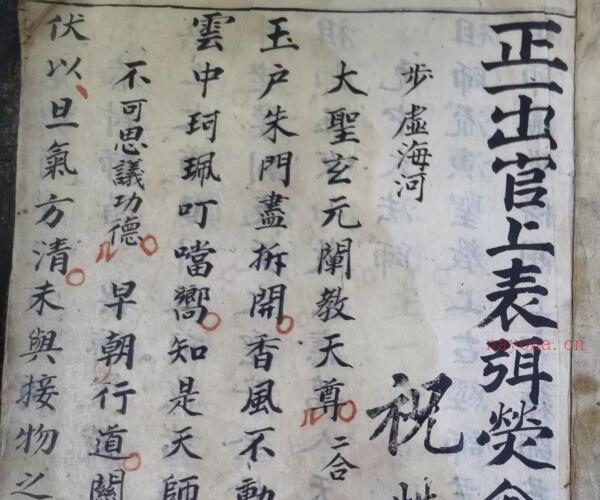 正一出官上表弭熒
祝
步虛海河
大聖玄元闡教天尊 二合
玉户朱門盡拆開香風不動
雲中珂珮叮噹嚮知是天師
不可思議功德 早朝行道關
伏以旦氣方清未與接物之